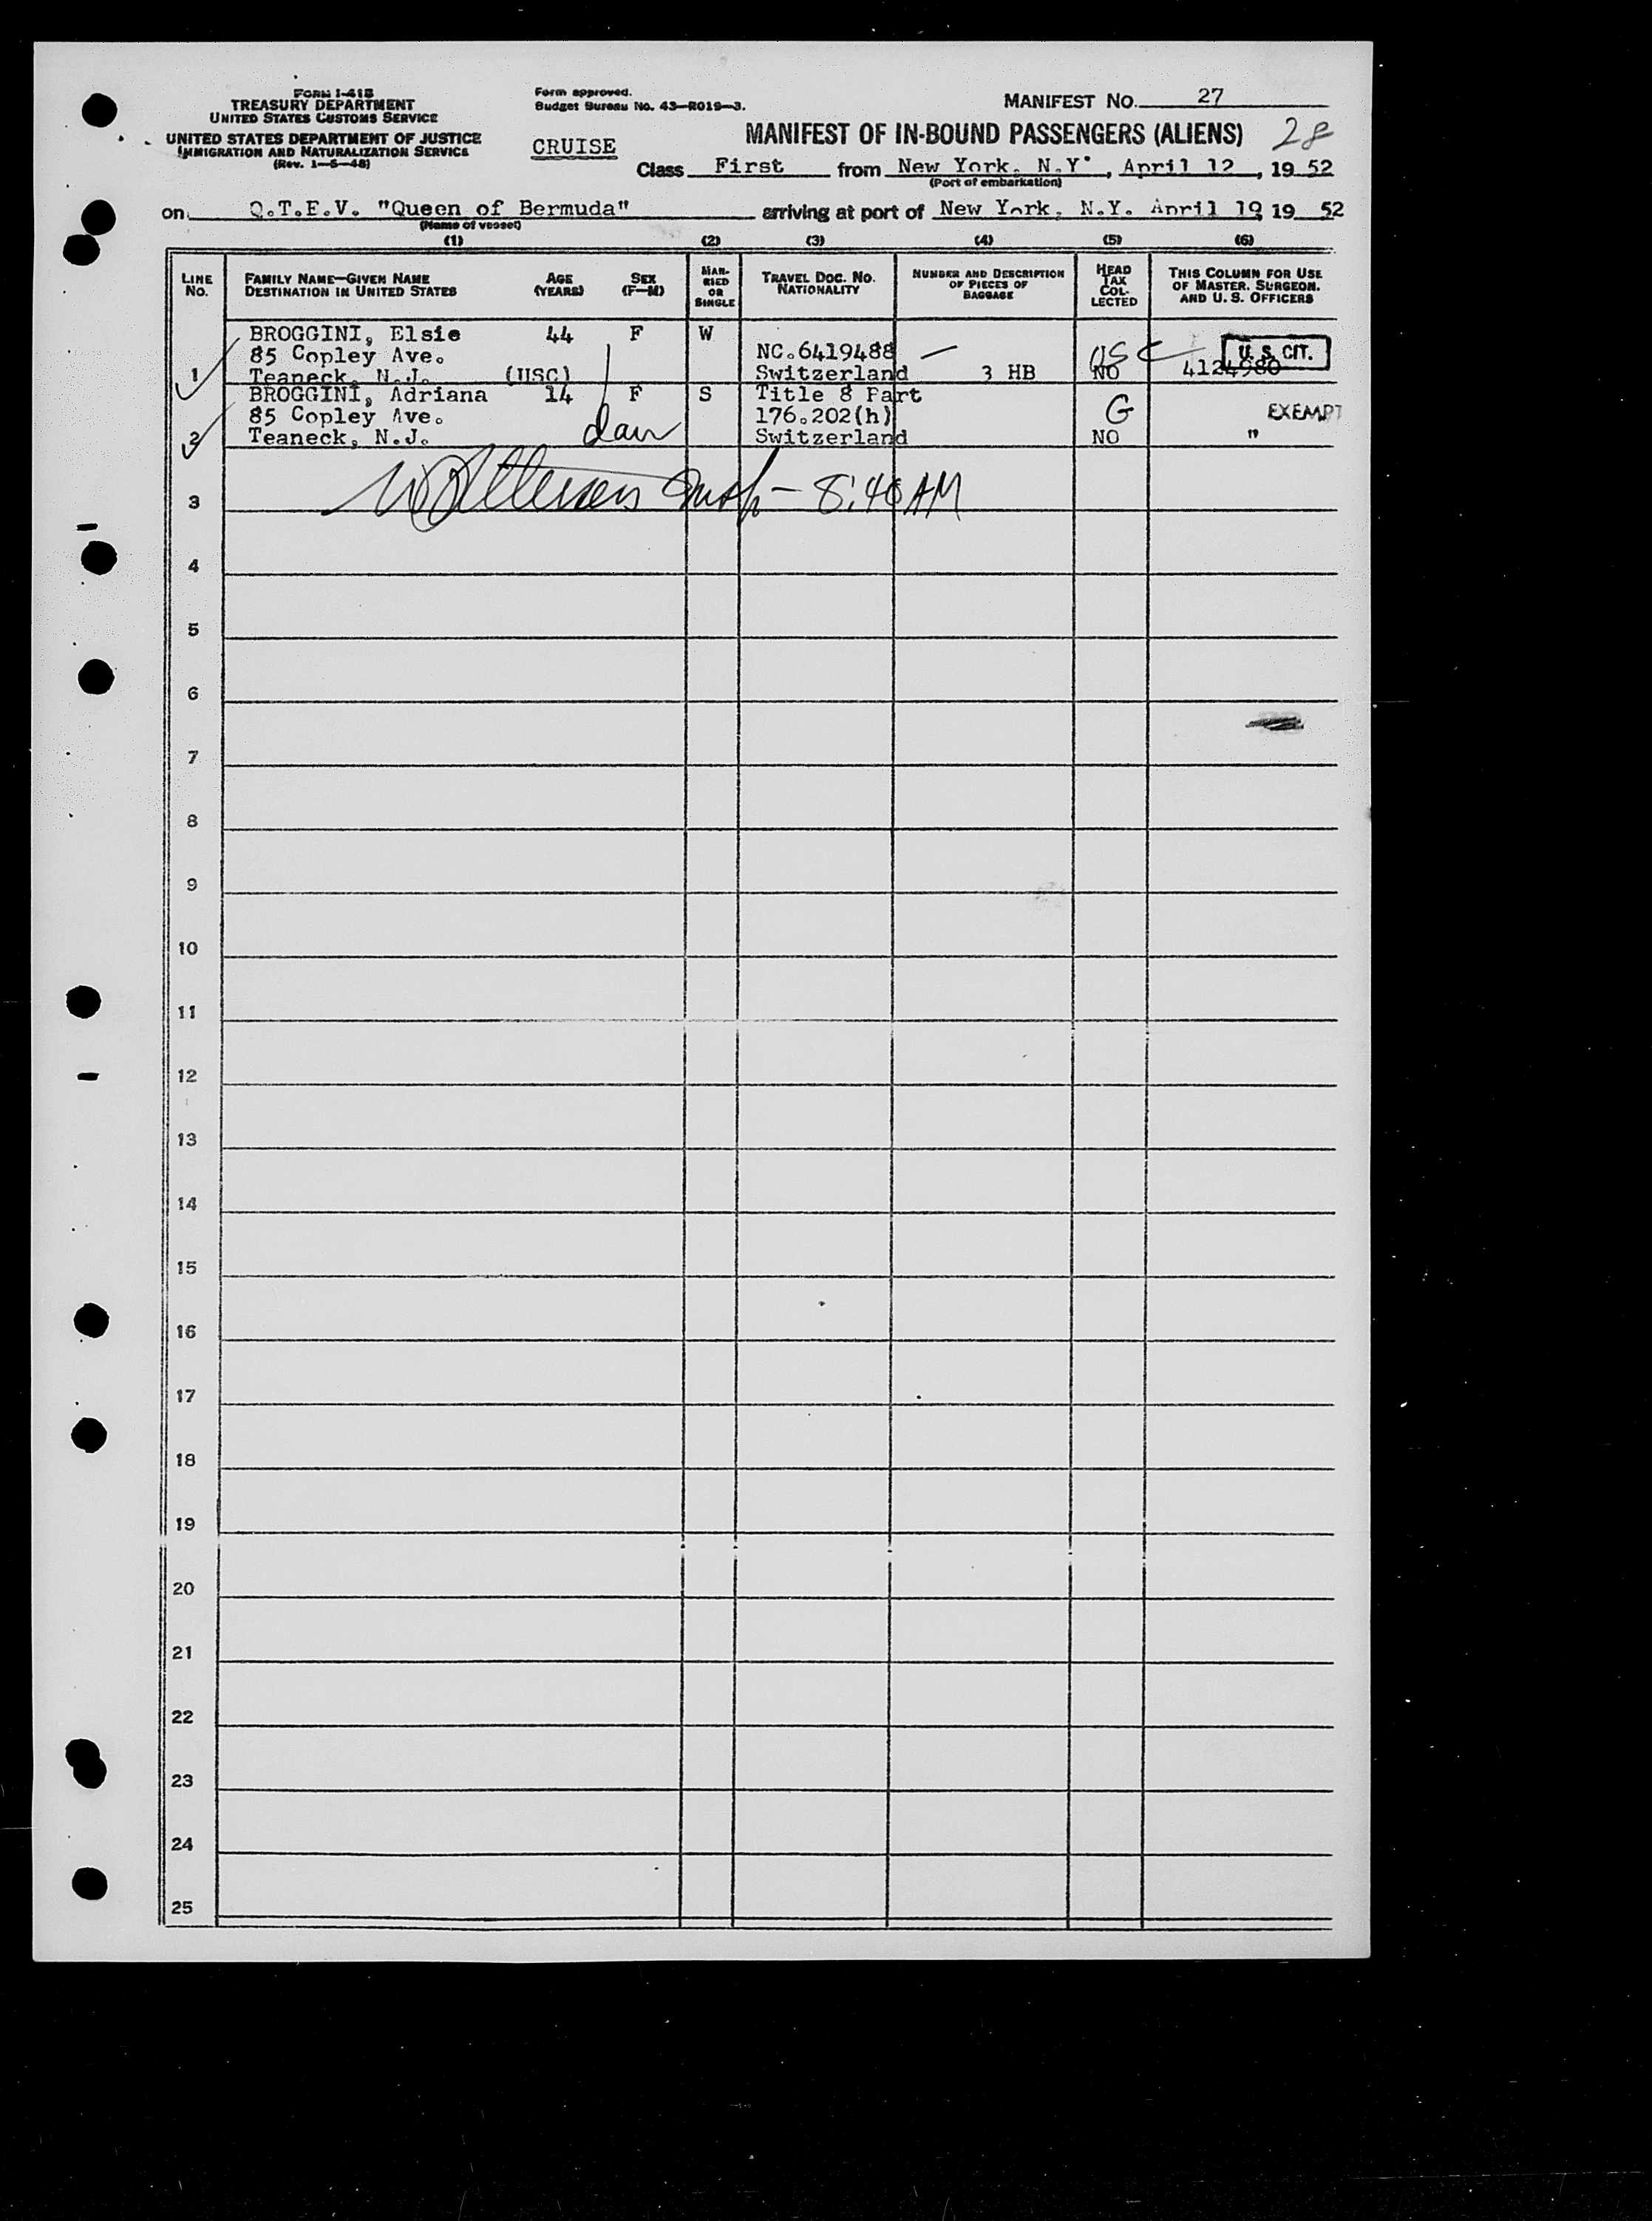 FORM I-418
TREASURY DEPARTMENT
UNITED STATES CUSTOMS SERVICE
UNITED STATES DEPARTMENT OF JUSTICE
IMMIGRATION AND NATURALIZATION SERVICE
(Rev. 1—5—48)
Form approved.
Budget Bureau No. 43—R019—3.
CRUISE
MANIFEST NO. 27
MANIFEST OF IN-BOUND PASSENGERS (ALIENS) 28
Class First from New York, N.Y. , April 12 , 19 52
(Port of embarkation)
on Q.T.E.V. "Queen of Bermuda" arriving at port of New York, N.Y. April 19 19 52
(Name of vessel)
(1) (2) (3) (4) (5) (6)
LINE NO.
FAMILY NAME—GIVEN NAME
DESTINATION IN UNITED STATES
AGE (YEARS)
SEX (F—M)
MARRIED OR SINGLE
TRAVEL DOC. NO.
NATIONALITY
NUMBER AND DESCRIPTION OF PIECES OF BAGGAGE
HEAD TAX COLLECTED
THIS COLUMN FOR USE OF MASTER, SURGEON, AND U. S. OFFICERS
BROGGINI, Elsie 44 F W
85 Copley Ave. NC.6419488 — USC U. S. CIT.
1 Teaneck, N.J. (USC) Switzerland 3 HB NO 4124980
BROGGINI, Adriana 14 F S Title 8 Part
85 Copley Ave. 176.202(h) G EXEMPT
2 Teaneck, N.J. dau Switzerland NO "
3 Insp — 8:40 AM
4
5
6
7
8
9
10
11
12
13
14
15
16
17
18
19
20
21
22
23
24
25